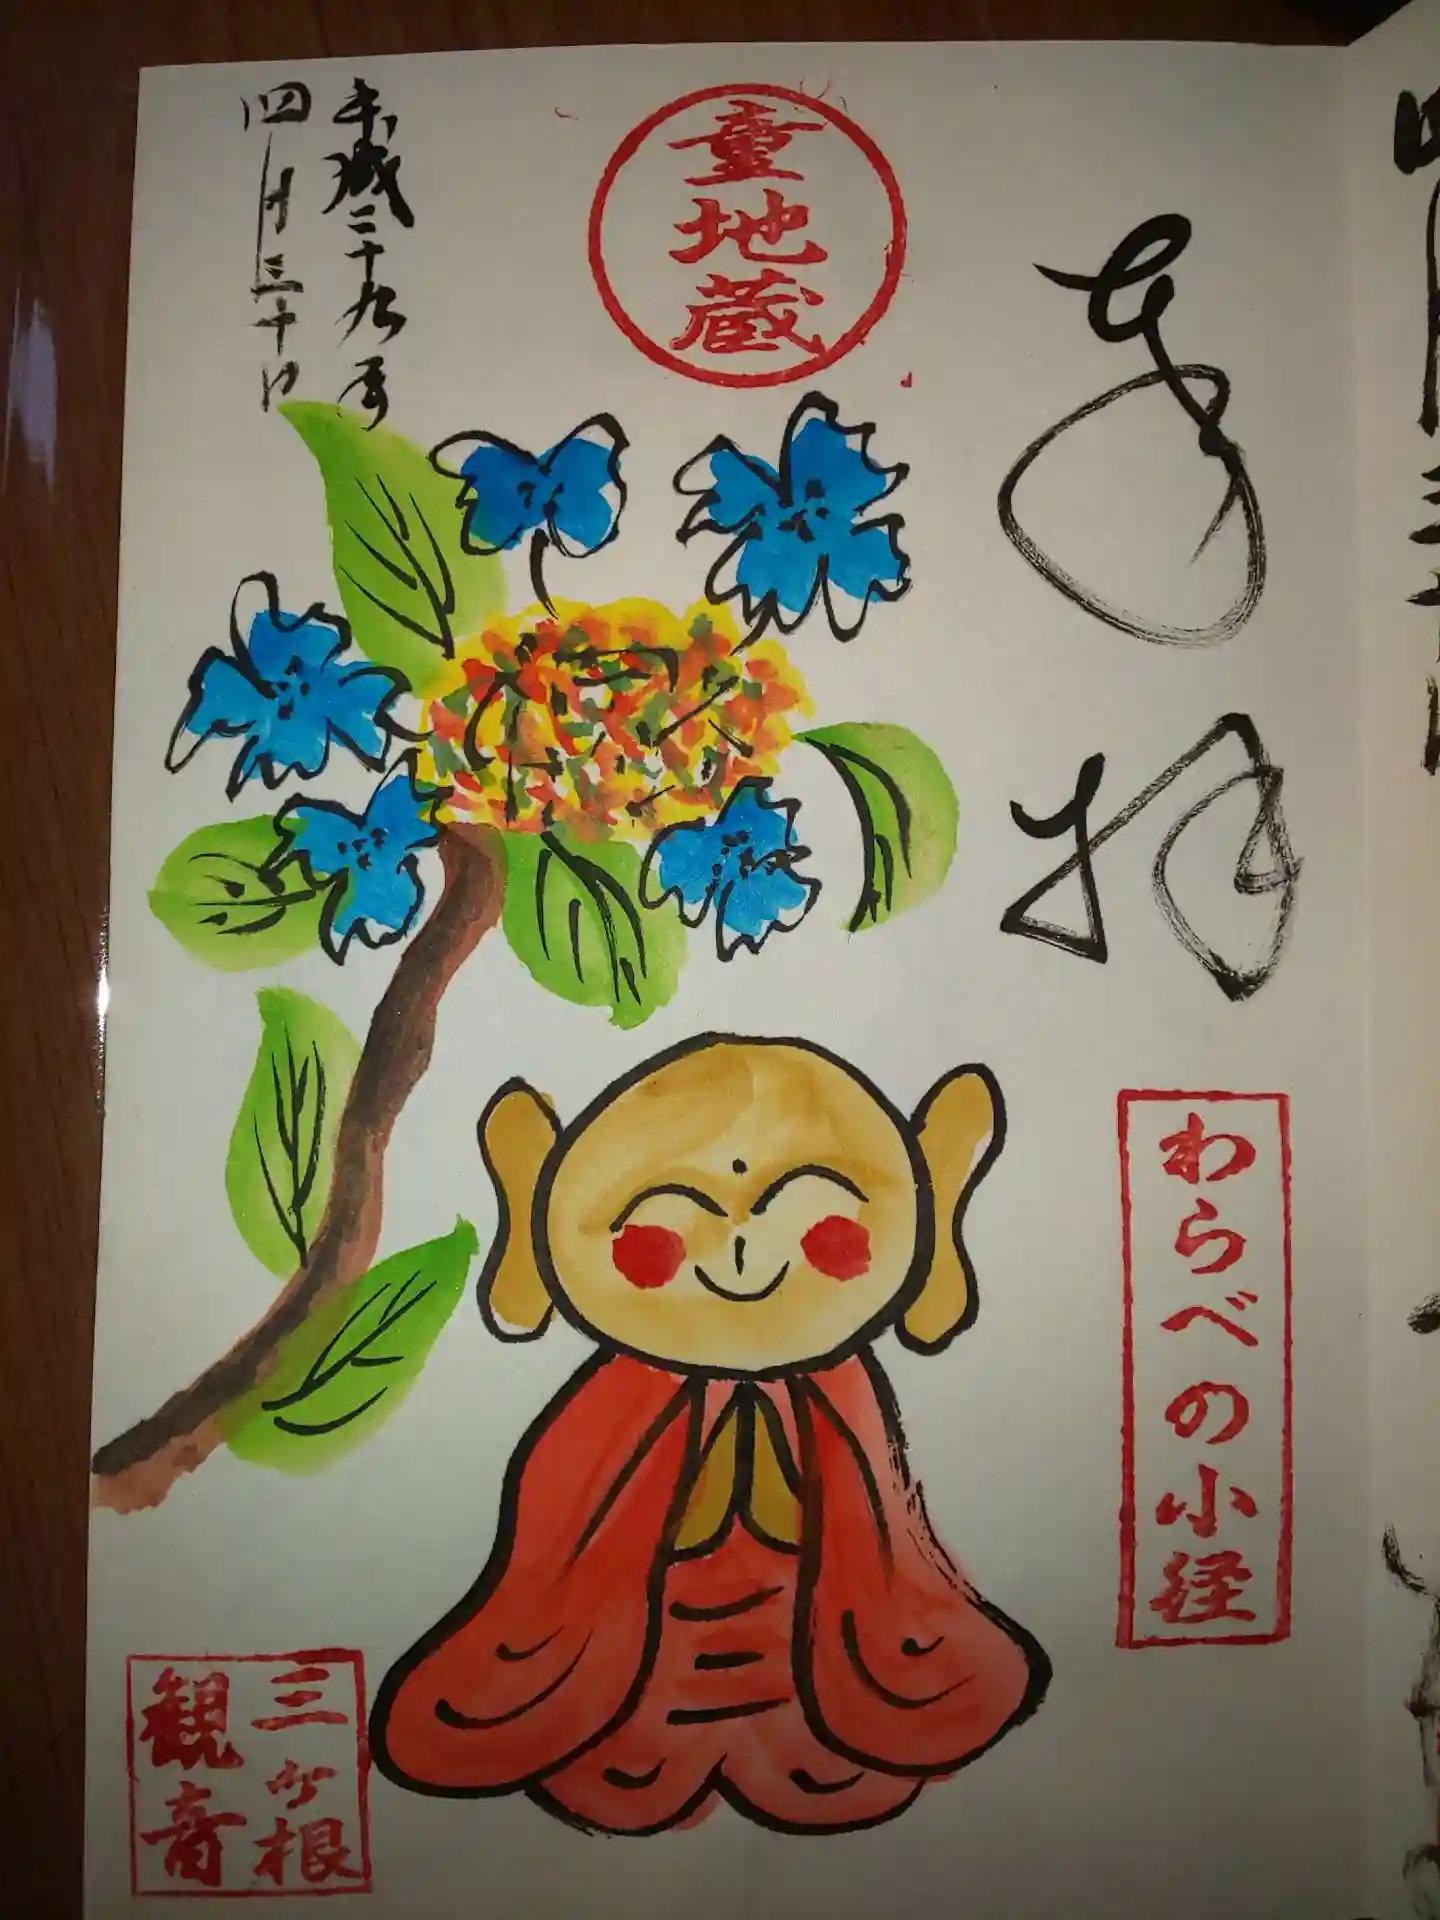 奉拝
わらべの小径
童地蔵
平成二十九年
四月三十日
三ヶ根
観音